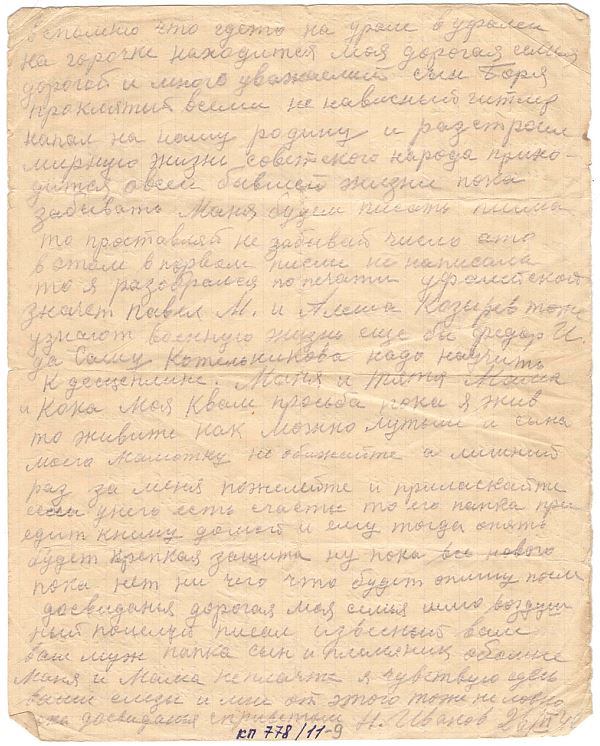 вспомню что гдето на урале в уфалеи
на горочке находится моя дорогая семия
дорогой и много уважаемый сын Боря
проклятый всеми не нависный гитлер
напал на нашу родину и разстроил
мирную жизнь советского народа прихо-
дится овсей бывшей жизни пока
забывать Маня будеш писать писма
то проставляй не забывай число ато
в этом в первом писме не написала
то я разобрался попечати уфалейской
значет Павел М. и Алеша Козырев тоже
узнают военную жизнь еще бы Федор И.
да Сашу Котельникова надо научить
кдесцеплине. Маня и тятя Мама
и Кока Моя Квам просьба пока я жив
то живите как можно лутьши и сына
моего не обижайте а лишний
раз за меня пожелейте и приласкайте
если унего есть счастье то его папка при
едит книму домой и ему тогда опять
будет крепкая защита ну пока все нового
пока нет ни чего что будет опишу посл
досвидания дорогая моя семия шлю воздуш
ный поцелуй писал известный вам
ваш муж папка сын и племеник
Маня и Мама неплачте я чувствую здесь
ваши слезы и мне от этого тоже не ловко
досвидания сприветом Н. Иванов
КП 778/11-9